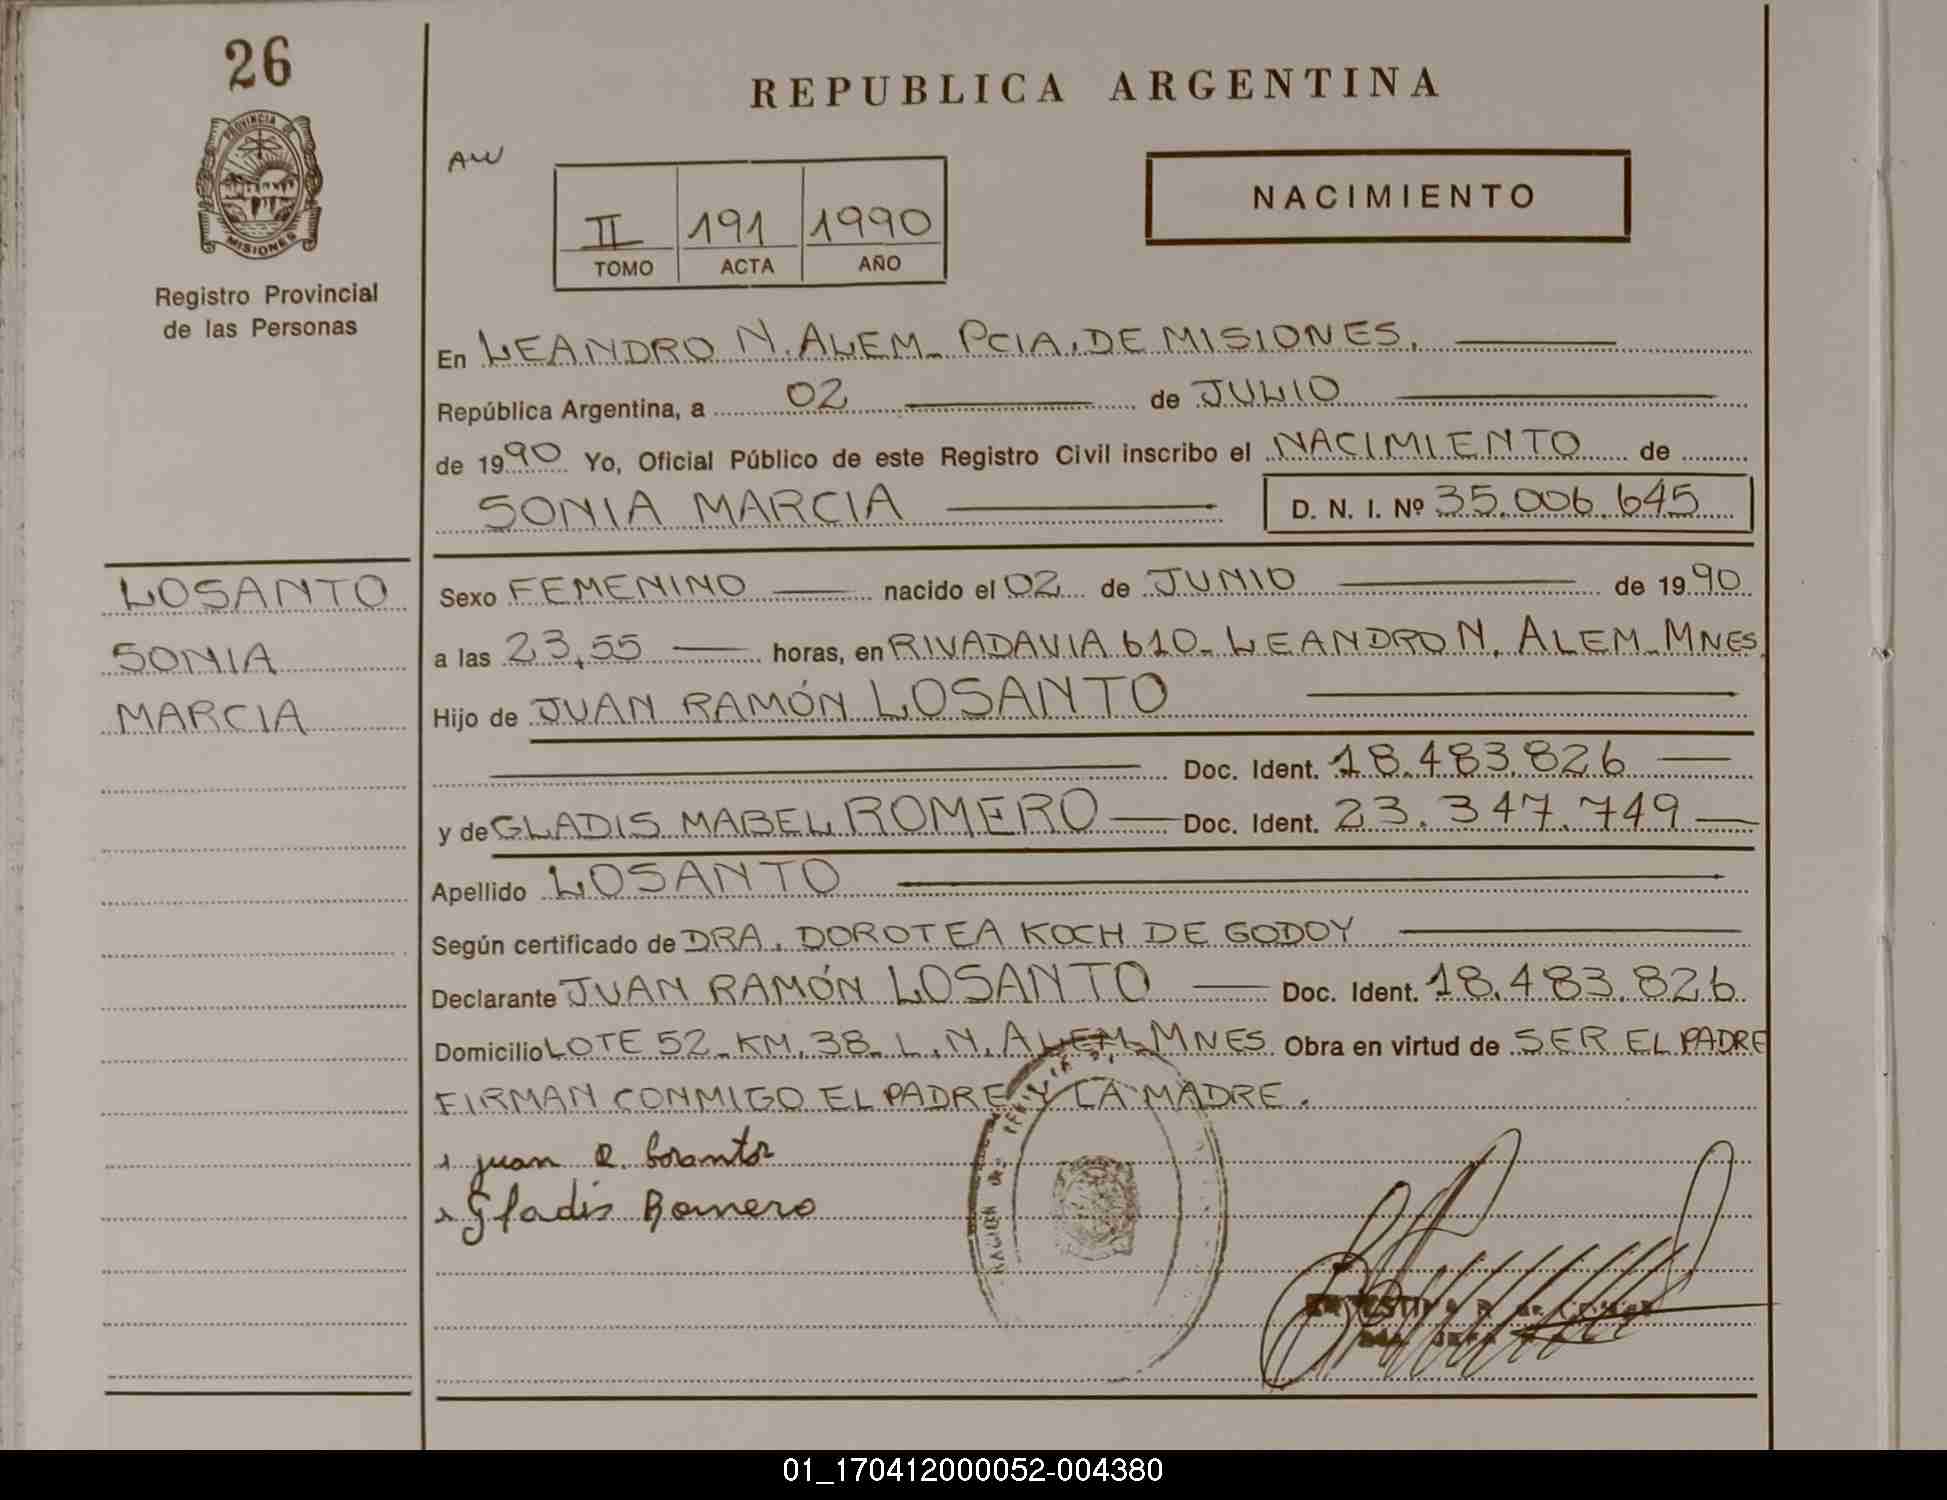 26
PROVINCIA DE
MISIONES
Registro Provincial
de las Personas
REPUBLICA ARGENTINA
AW
II 191 1990
TOMO ACTA AÑO
NACIMIENTO
En LEANDRO N. ALEM_ PCIA. DE MISIONES.
República Argentina, a 02 de JULIO
de 1990 Yo, Oficial Público de este Registro Civil inscribo el NACIMIENTO de
SONIA MARCIA D. N. I. Nº 35.006.645
LOSANTO
SONIA
MARCIA
Sexo FEMENINO nacido el 02 de JUNIO de 1990
a las 23,55 horas, en RIVADAVIA 610_ LEANDRO N. ALEM_ MNES.
Hijo de JUAN RAMÓN LOSANTO
Doc. Ident. 18.483.826
y de GLADIS MABEL ROMERO Doc. Ident. 23.347.749
Apellido LOSANTO
Según certificado de DRA. DOROTEA KOCH DE GODOY
Declarante JUAN RAMÓN LOSANTO Doc. Ident. 18.483.826
Domicilio LOTE 52_ KM. 38_ L. N. ALEM_ MNES Obra en virtud de SER EL PADRE
FIRMAN CONMIGO EL PADRE Y LA MADRE.
juan R. Losanto
Gladis Romero
01_170412000052-004380